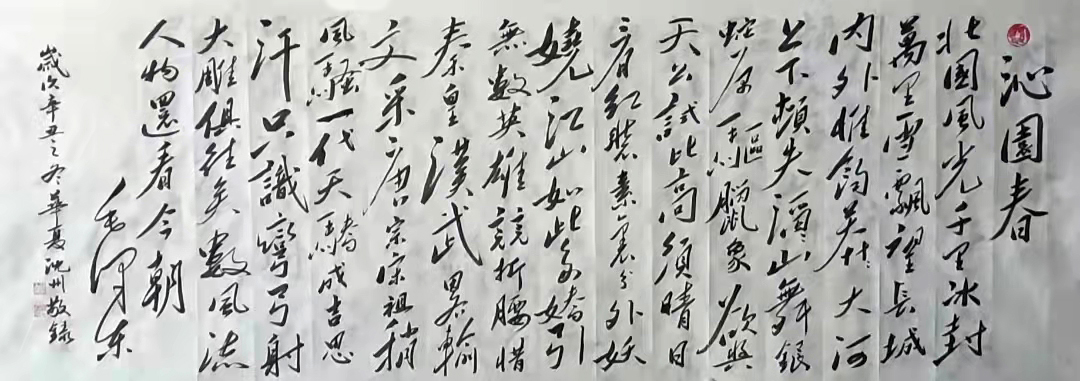 沁園春
北國風光千里冰封
萬里雪飄望長城
内外惟餘莽莽大河
上下頓失滔滔山舞銀
蛇原馳臘象欲與
天公試比高須晴日
看紅裝素裹分外妖
嬈江山如此多嬌引
無數英雄競折腰惜
秦皇漢武畧輸
文采唐宗宋祖稍
風騷一代天驕成吉思
汗只識彎弓射
大雕俱往矣數風流
人物還看今朝
毛澤东
歲次辛丑之冬華夏沈州敬錄